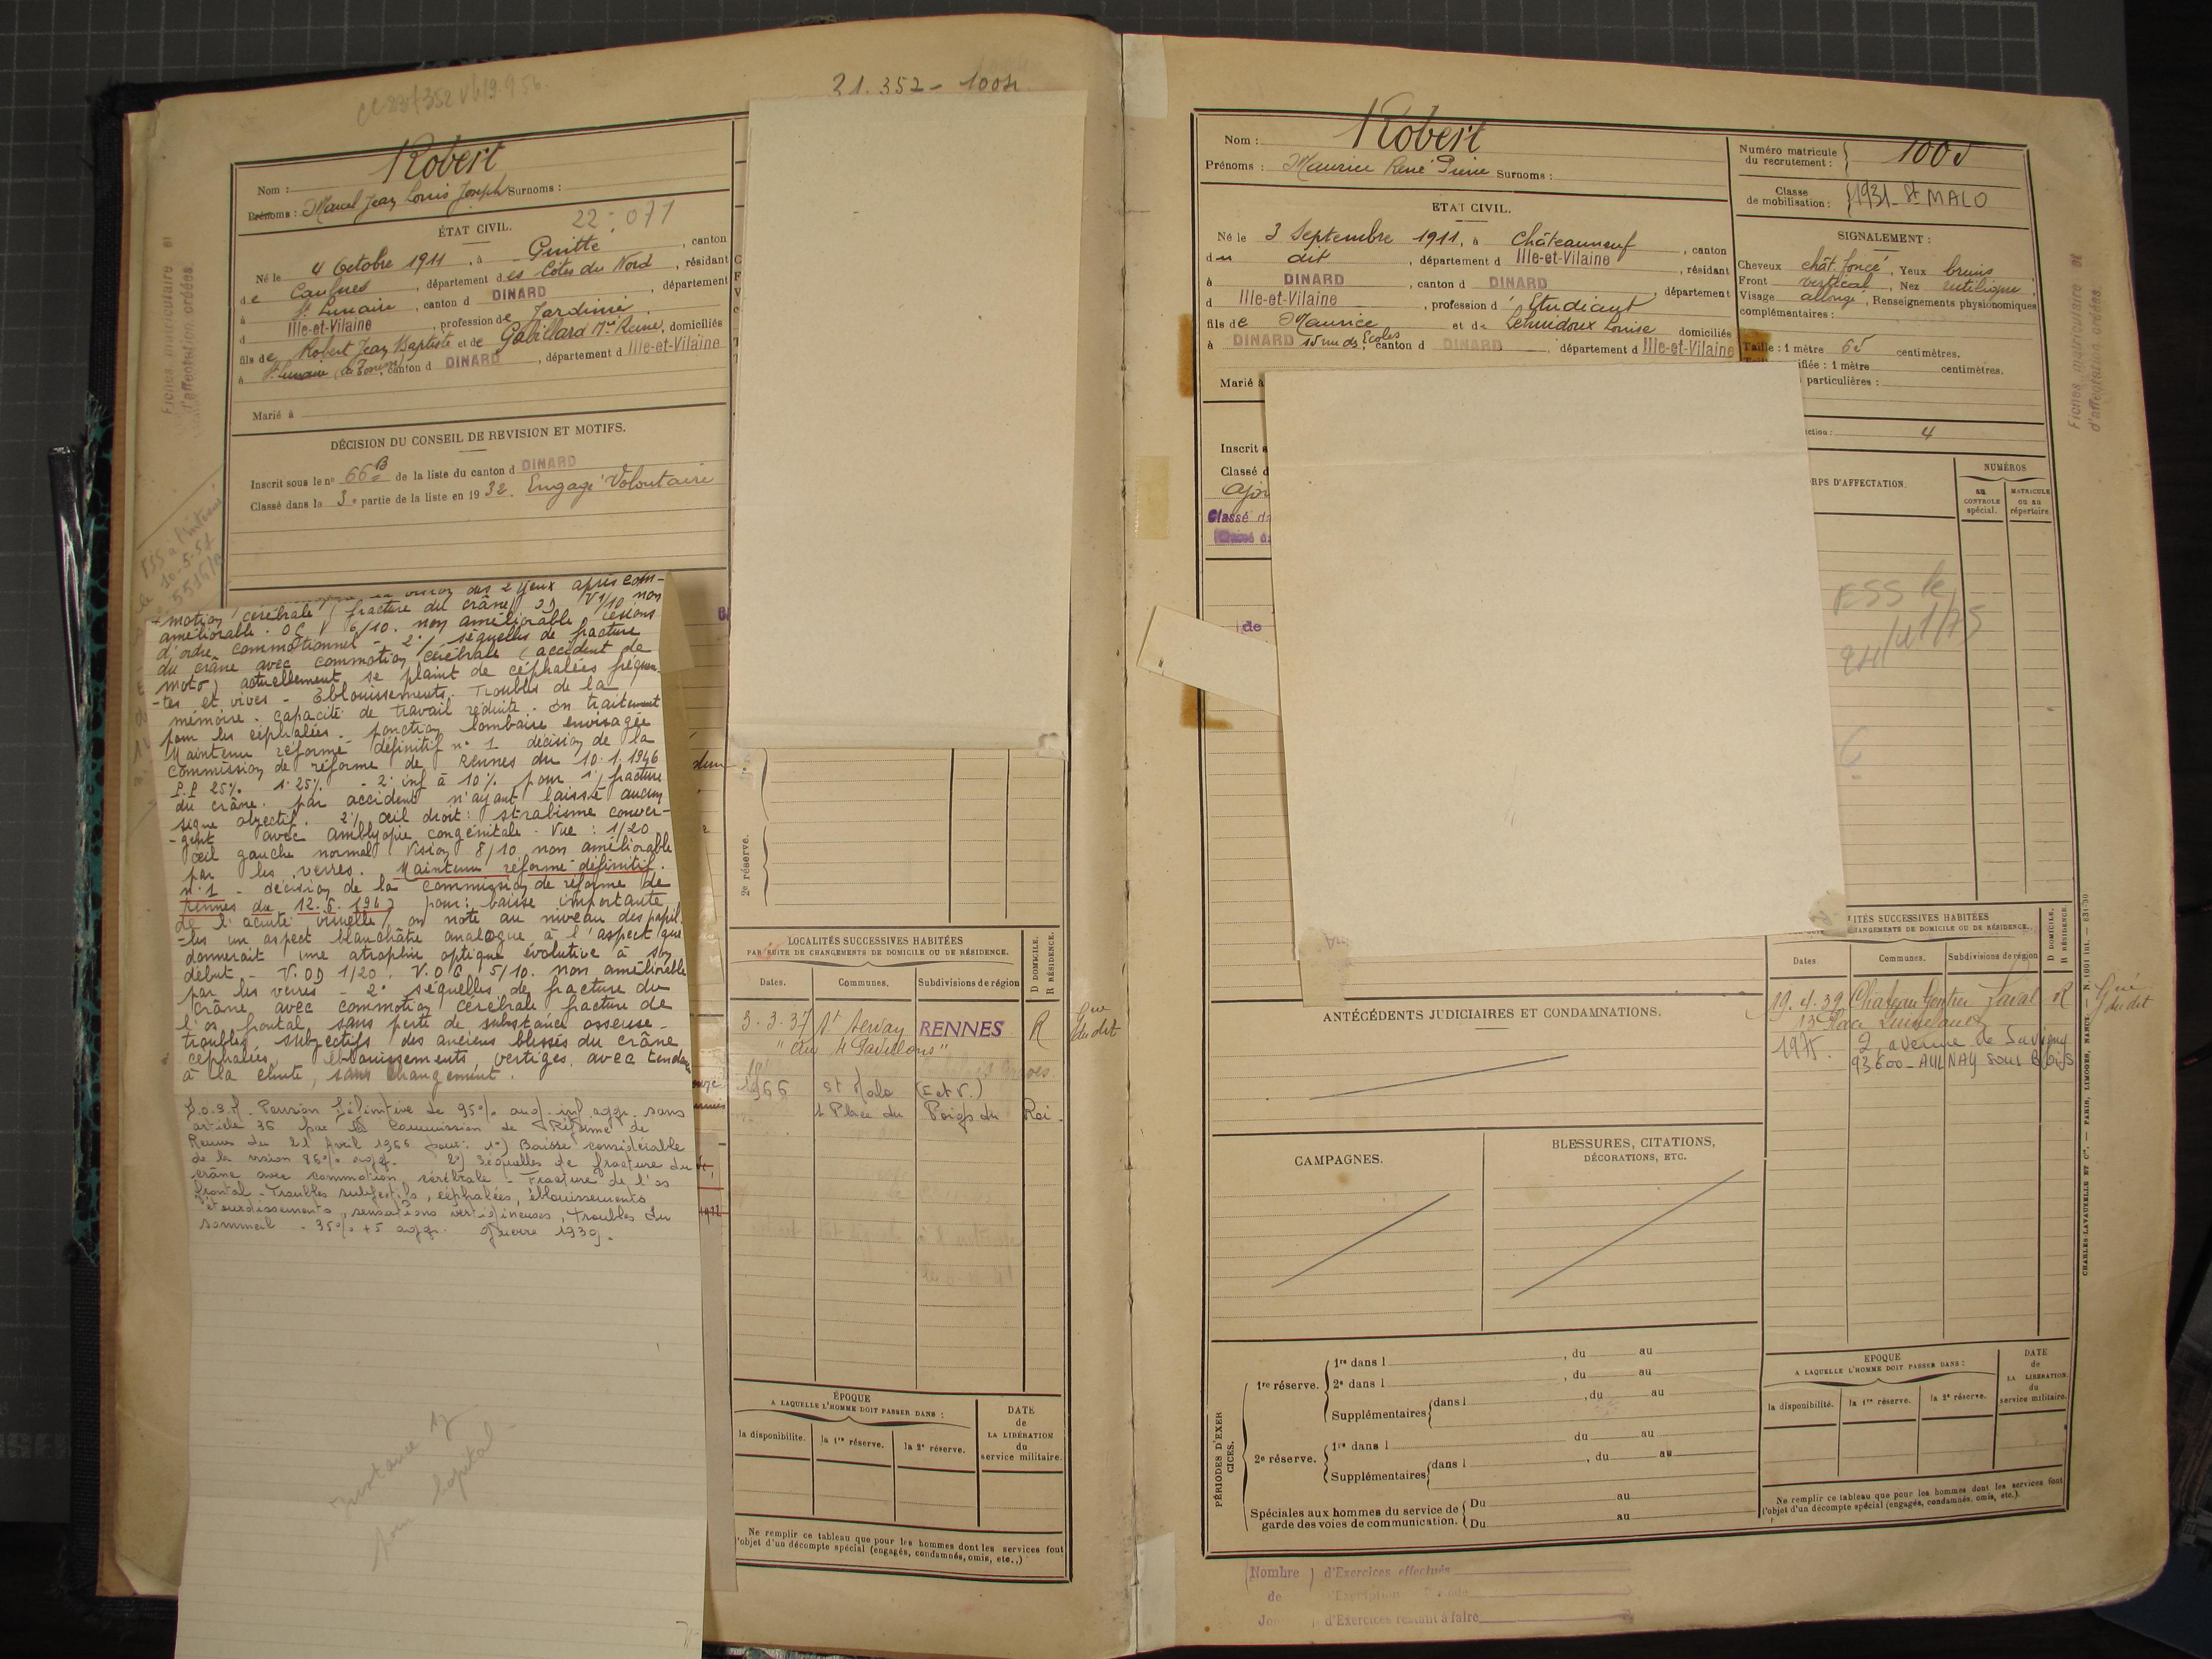 31.352 - 1004
Robert
Nom :
Prénoms : Marcel Jean Louis Joseph Surnoms :
22.071
ÉTAT CIVIL.
Né le 4 Octobre 1911, à Guitte, canton
de Caulnes, département des Côtes du Nord, résidant
à St Lunaire, canton d DINARD, département
d Ille-et-Vilaine, profession de Jardinier
fils de Robert Jean Baptiste et de Gobillard Mie Reine, domiciliés
à St Lunaire, canton d DINARD, département d Ille-et-Vilaine
Marié à
DÉCISION DU CONSEIL DE REVISION ET MOTIFS.
Inscrit sous le no 66B de la liste du canton d DINARD
Classé dans la 3e partie de la liste en 1932. Engagé Volontaire
Fiches matriculaire et
d'affectation créées.
vision des 2 yeux après com-
-motion cérébrale (fracture du crâne) OD V 1/10 non
améliorable. OG V 6/10. non améliorable lésions
d'ordre commotionnel - 2°/ séquelles de fracture
du crâne avec commotion cérébrale (accident de
moto) actuellement se plaint de céphalées fréquen-
-tes et vives - Eblouissements. Troubles de la
mémoire. capacité de travail réduite. en traitement
pour les céphalées. ponction lombaire envisagée
Maintenu réformé définitif n° 1 décision de la
Commission de réforme de Rennes du 10.1.1946
P.P 25% 1° 25% - 2° inf à 10% pour 1°/ fracture
du crâne. par accident n'ayant laissé aucun
signe objectif. 2°/ œil droit : strabisme conver-
-gent avec amblyopie congénitale. Vue : 1/20
œil gauche normal Vision 8/10 non améliorable
par les verres. Maintenu réformé définitif.
n° 1 - décision de la Commission de réforme de
Rennes du 12.6.196 pour : baisse importante
de l'acuité visuelle, on note au niveau des papil-
-les un aspect blanchâtre analogue à l'aspect que
donnerait une atrophie optique évolutive à son
début - V.OD 1/20. V.OG 5/10. non améliorable
par les verres - 2° séquelles de fracture du
crâne avec commotion cérébrale fracture de
l'os frontal sans perte de substance osseuse -
troubles subjectifs des anciens blessés du crâne
céphalées, éblouissements, vertiges avec tendance
à la chute, sans changement.
Pension définitive de 95% aug. inf. aggr. sans
article 36 par la Commission de Réforme de
Rennes du 21 Avril 1966 pour : 1°) Baisse considérable
de la vision 86% aggr. 2°) Séquelles de fracture du
crâne avec commotion cérébrale - Fracture de l'os
frontal - Troubles subjectifs, céphalées, éblouissements
étourdissements, sensations vertigineuses, troubles du
sommeil - 35% +5 aggr. Guerre 1939.
pour hopital
2e réserve.
LOCALITÉS SUCCESSIVES HABITÉES
PAR SUITE DE CHANGEMENTS DE DOMICILE OU DE RÉSIDENCE.
D DOMICILE.
R RÉSIDENCE.
Dates. Communes. Subdivisions de région
3.3.37 St Servan RENNES R Gie du dit
"aux 4 Pavillons"
1966 St Malo (I et V.)
1 Place du Poids du Roi.
ÉPOQUE
A LAQUELLE L'HOMME DOIT PASSER DANS :
la disponibilité. la 1re réserve. la 2e réserve.
DATE
de
LA LIBÉRATION
du
service militaire.
Ne remplir ce tableau que pour les hommes dont les services font
l'objet d'un décompte spécial (engagés, condamnés, omis, etc.,)
Nom : Robert
Prénoms : Maurice René Pierre Surnoms :
Numéro matricule
du recrutement : 1005
Classe
de mobilisation : 1931 St MALO
ETAT CIVIL.
Né le 3 Septembre 1911, à Châteauneuf, canton
du dit, département d Ille-et-Vilaine, résidant
à DINARD, canton d DINARD, département
d Ille-et-Vilaine, profession d' Etudiant
fils de Maurice et de Lehuidoux Louise domiciliés
à DINARD 15 rue des Ecoles, canton d DINARD, département d Ille-et-Vilaine
Marié à
SIGNALEMENT :
Cheveux chât. foncé, Yeux bruns,
Front vertical, Nez rectiligne,
Visage allongé, Renseignements physionomiques
complémentaires :
Taille : 1 mètre 65 centimètres.
ifiée : 1 mètre centimètres.
particulières :
ction : 4
Inscrit
Classé d
Ajou
Classé da
de
RPS D'AFFECTATION.
NUMÉROS
au
CONTROLE
spécial.
MATRICULE
ou au
répertoire
ESS le
24/4/75
ITÉS SUCCESSIVES HABITÉES
HANGEMENTS DE DOMICILE OU DE RÉSIDENCE.
D DOMICILE.
R RÉSIDENCE.
Dates. Communes. Subdivisions de région
19.4.39 Chateau Gontier Laval R Gie du dit
13 Place
1975. 2, avenue de Savigny
93600 - AULNAY sous Bois
ANTÉCÉDENTS JUDICIAIRES ET CONDAMNATIONS.
CAMPAGNES.
BLESSURES, CITATIONS,
DÉCORATIONS, ETC.
PÉRIODES D'EXERCICES.
1re réserve.
1re dans l , du au
2e dans l , du au
Supplémentaires dans l , du au
2e réserve.
1re dans l du au
Supplémentaires dans l , du au
Spéciales aux hommes du service de
garde des voies de communication.
Du au
Du au
EPOQUE
A LAQUELLE L'HOMME DOIT PASSER DANS :
la disponibilité. la 1re réserve. la 2e réserve.
DATE
de
LA LIBÉRATION
du
service militaire.
Ne remplir ce tableau que pour les hommes dont les services font
l'objet d'un décompte spécial (engagés, condamnés, omis, etc.).
Nombre d'Exercices effectués
de
d'Exercices restant à faire
Fiches matriculaire et
d'affectation créées.
CHARLES-LAVAUZELLE ET Cie. — PARIS, LIMOGES, NANCY.